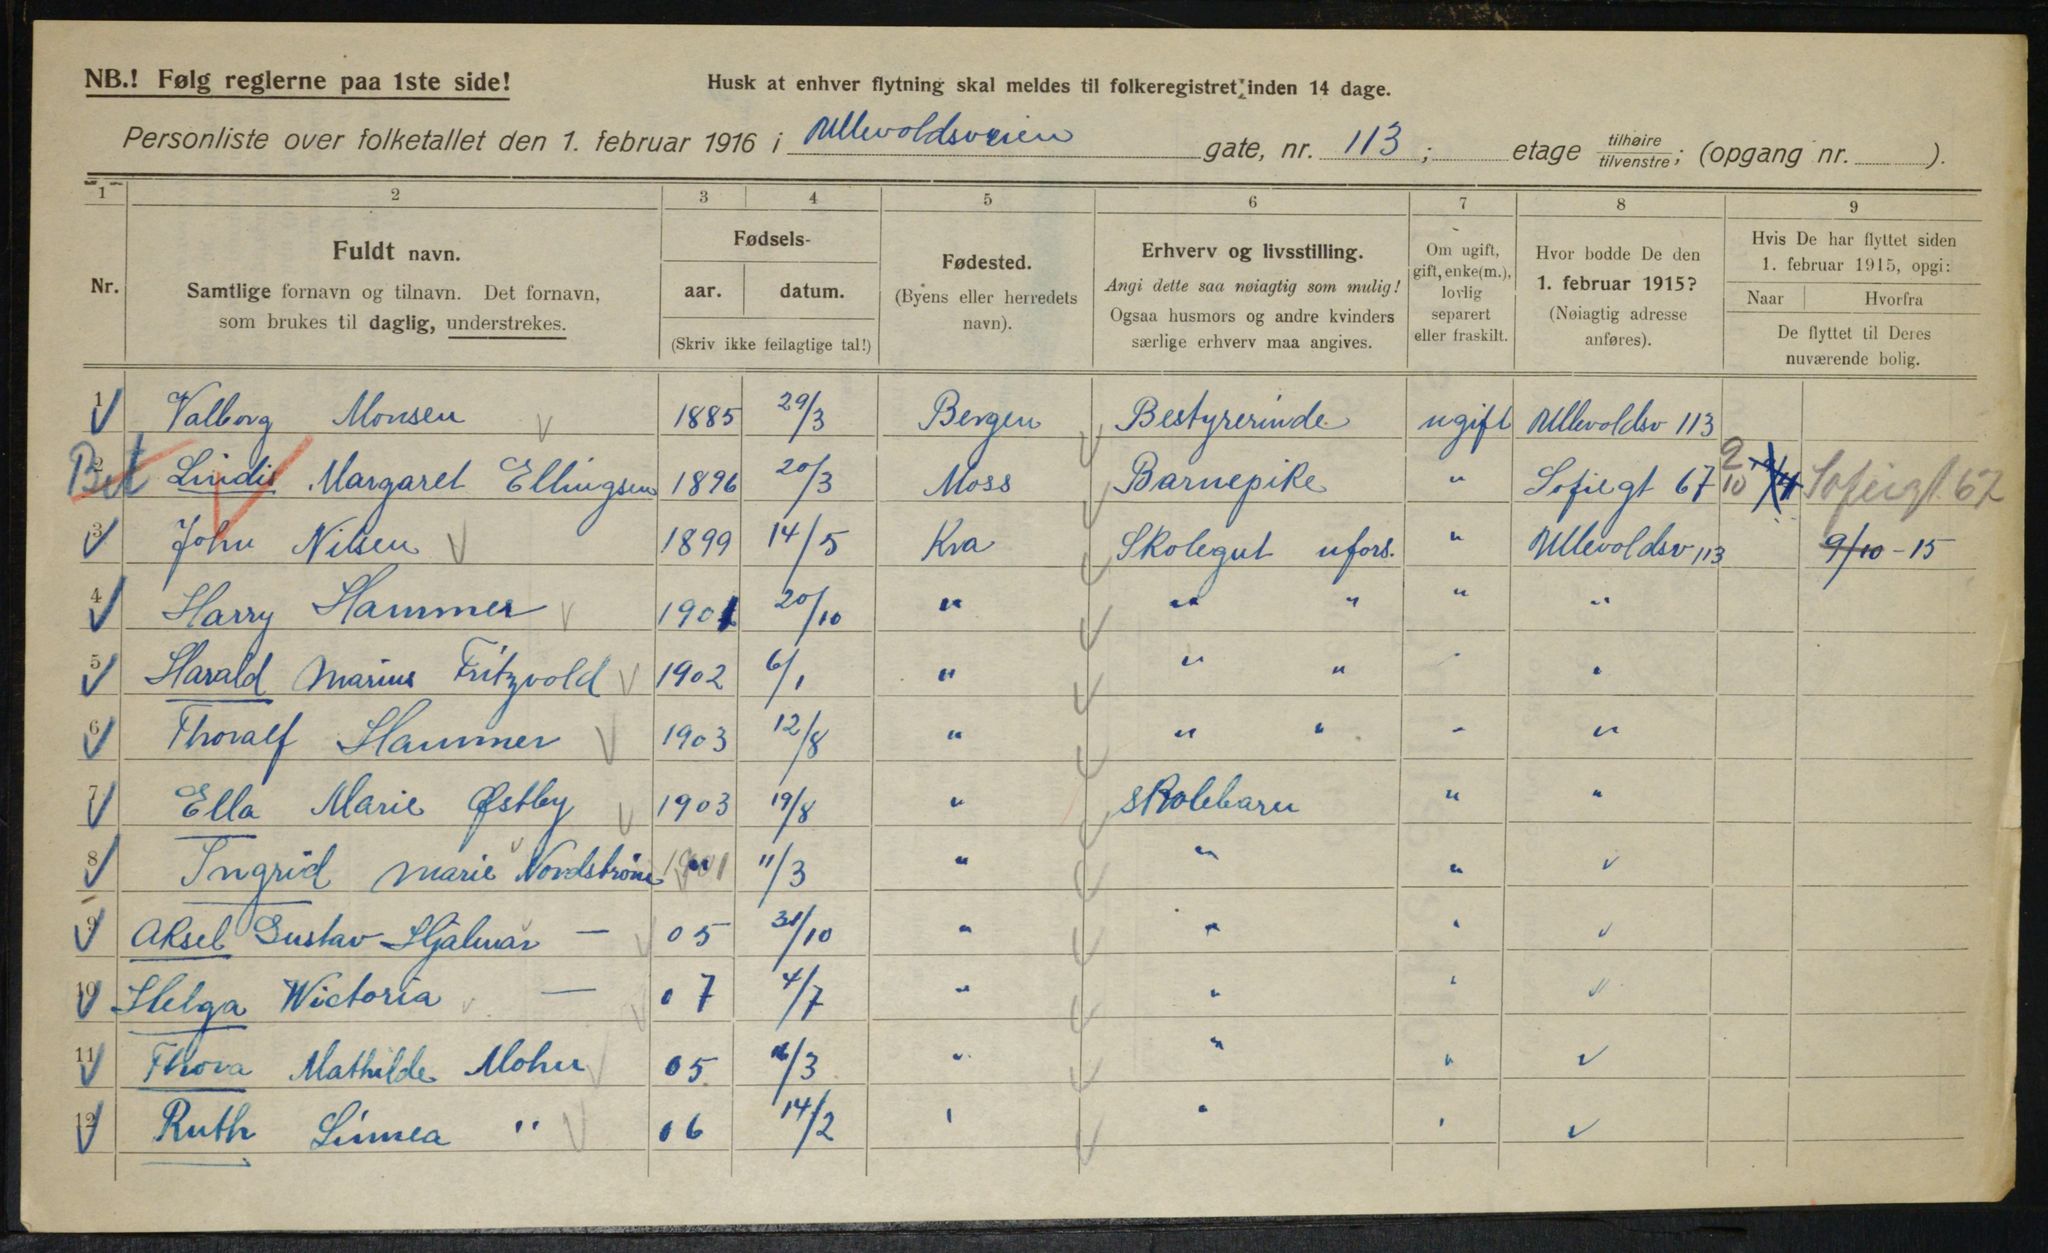 NB.! Følg reglerne paa 1ste side!
Husk at enhver flytning skal meldes til folkeregistret inden 14 dage.
Personliste over folketallet den 1. februar 1916 i Ullevoldsveien gate, nr. 113; etage tilhøire tilvenstre; (opgang nr. ).
1 2 3 4 5 6 7 8 9
Nr.
Fuldt navn.
Samtlige fornavn og tilnavn. Det fornavn,
som brukes til daglig, understrekes.
Fødsels-
aar. datum.
(Skriv ikke feilagtige tal!)
Fødested.
(Byens eller herredets
navn).
Erhverv og livsstilling.
Angi dette saa nøiagtig som mulig!
Ogsaa husmors og andre kvinders
særlige erhverv maa angives.
Om ugift,
gift, enke(m.),
lovlig
separert
eller fraskilt.
Hvor bodde De den
1. februar 1915?
(Nøiagtig adresse
anføres).
Hvis De har flyttet siden
1. februar 1915, opgi:
Naar Hvorfra
De flyttet til Deres
nuværende bolig.
1 Valborg Monsen 1885 29/3 Bergen Bestyrerinde ugift Ullevoldsv 113
2 Bet Lindis Margaret Ellingsen 1896 20/3 Moss Barnepike " Sofiegt 67 2/10 Sofiegt. 67
3 John Nilsen 1899 14/5 Kra Skolegut ufors. " Ullevoldsv 113 9/10 - 15
4 Harry Hammer 1901 20/10 " " " " "
5 Harald Marius Fritzvold 1902 6/1 " " " - "
6 Thoralf Hammer 1903 12/8 " " " - "
7 Ella Marie Østby 1903 19/8 " Skolebarn " "
8 Ingrid Marie Nordstrøm 1901 11/3 " " " "
9 Aksel Gustav Hjalmar — 05 31/10 " " " "
10 Helga Wictoria — 07 4/7 " " " "
11 Thora Mathilde Mohn 05 /3 " " " "
12 Ruth Linnea " 06 14/2 " " " "